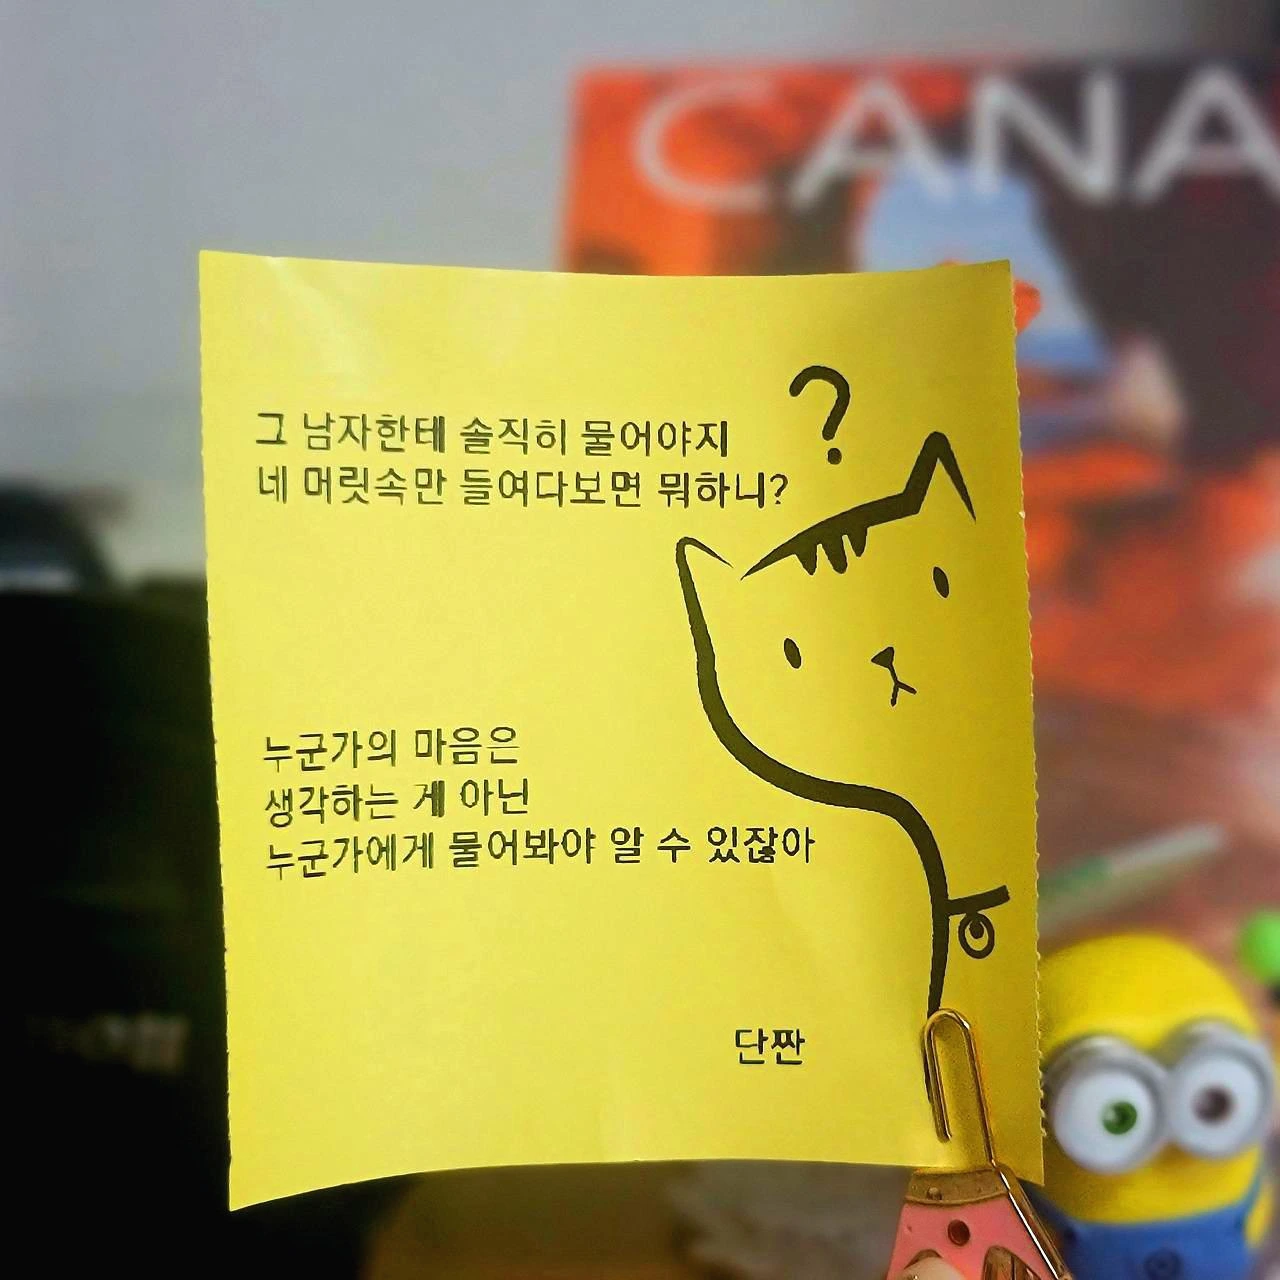 CANA
?
그 남자한테 솔직히 물어야지
네 머릿속만 들여다보면 뭐하니?
누군가의 마음은
생각하는 게 아닌
누군가에게 물어봐야 알 수 있잖아
단짠